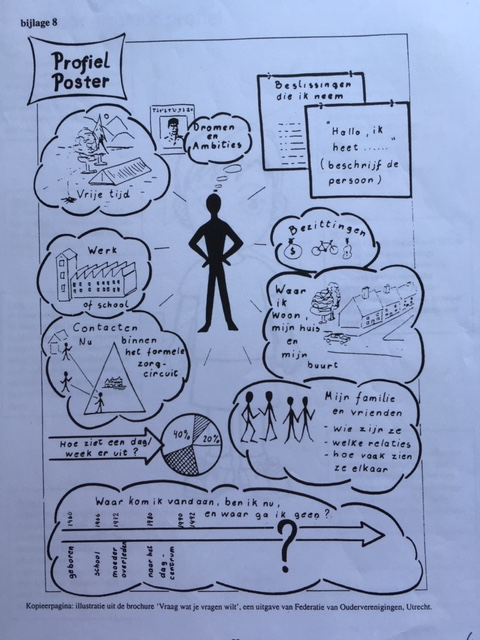 bijlage 8
Profiel
Poster
Beslissingen
die ik neem
"Hallo, ik
heet ......"
(beschrijf de
persoon)
Dromen
en
Ambities
Vrije tijd
Bezittingen
$
Werk
of school
Waar
ik
woon,
mijn huis
en
mijn
buurt
Contacten
Nu binnen
het formele
zorg-
circuit
Mijn familie
en vrienden
- wie zijn ze
- welke relaties
- hoe vaak zien
ze elkaar
Hoe ziet een dag/
week er uit?
40%
20%
Waar kom ik vandaan, ben ik nu,
en waar ga ik heen?
1960
1966
1972
1980
1990
1992
geboren
school
moeder
overleden
naar het
dag-
centrum
?
Kopieerpagina: illustratie uit de brochure 'Vraag wat je vragen wilt', een uitgave van Federatie van Ouderverenigingen, Utrecht.